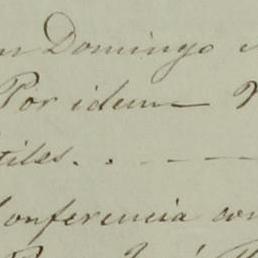 Domingo
Por idem
tiles. . - - -
Conferencia con